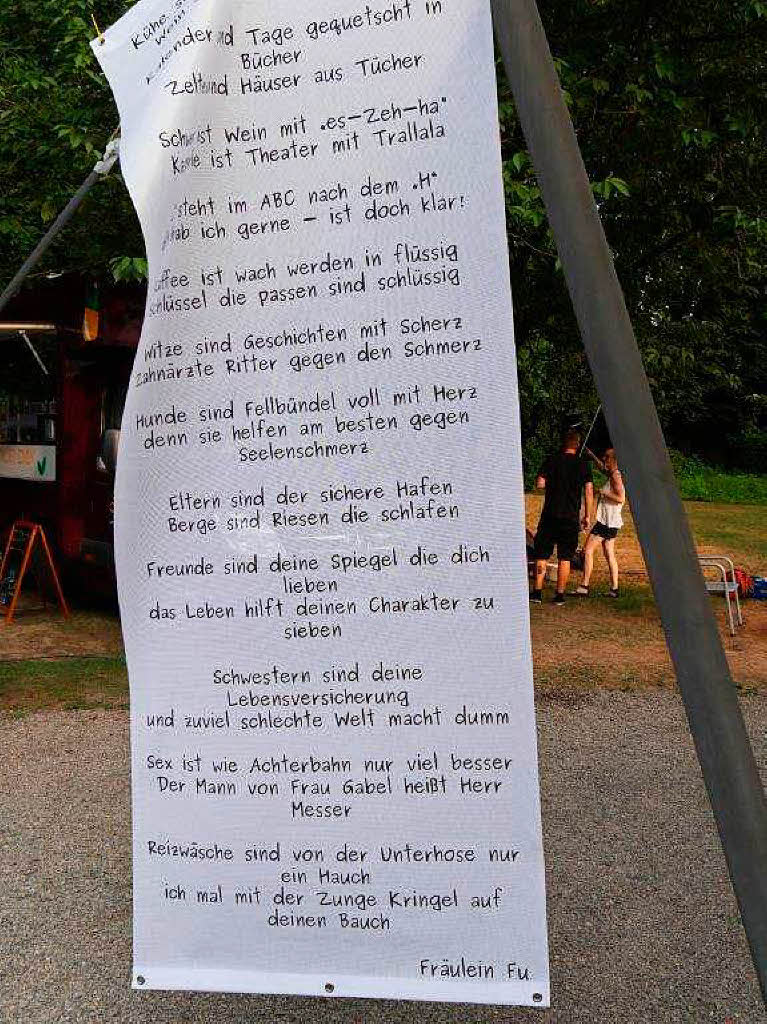 Kühe
Wein
Kalender nd Tage gequetscht in
Bücher
Zelte und Häuser aus Tücher
ist Wein mit „es-Zeh-ha"
ist Theater mit Trallala
steht im ABC nach dem „H"
ab ich gerne - ist doch klar!
ffee ist wach werden in flüssig
schlüssel die passen sind schlüssig
Witze sind Geschichten mit Scherz
Zahnärzte Ritter gegen den Schmerz
Hunde sind Fellbündel voll mit Herz
denn sie helfen am besten gegen
Seelenschmerz
Eltern sind der sichere Hafen
Berge sind Riesen die schlafen
Freunde sind deine Spiegel die dich
lieben
das Leben hilft deinen Charakter zu
sieben
Schwestern sind deine
Lebensversicherung
und zuviel schlechte Welt macht dumm
Sex ist wie Achterbahn nur viel besser
Der Mann von Frau Gabel heißt Herr
Messer
Reizwäsche sind von der Unterhose nur
ein Hauch
ich mal mit der Zunge Kringel auf
deinen Bauch
Fräulein Fu